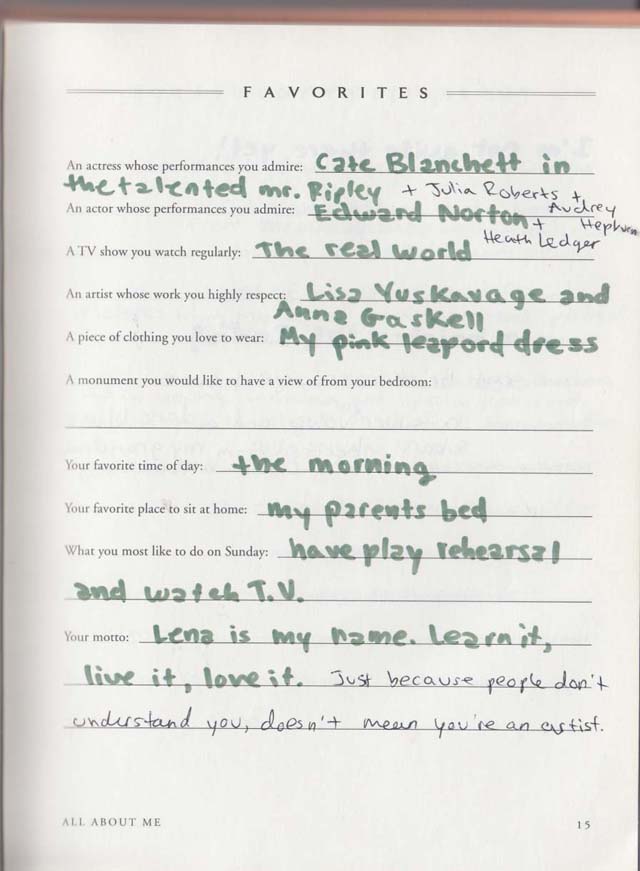 FAVORITES
An actress whose performances you admire: Cate Blanchett in
the talented mr. Ripley + Julia Roberts +
Audrey
Hepburn
An actor whose performances you admire: Edward Norton +
Heath Ledger
A TV show you watch regularly: The real world
An artist whose work you highly respect: Lisa Yuskavage and
Anna Gaskell
A piece of clothing you love to wear: My pink leapord dress
A monument you would like to have a view of from your bedroom:
Your favorite time of day: the morning
Your favorite place to sit at home: my parents bed
What you most like to do on Sunday: have play rehearsal
and watch T.V.
Your motto: Lena is my name. Learn it,
live it, love it. Just because people don't
understand you, doesn't mean you're an artist.
ALL ABOUT ME
15